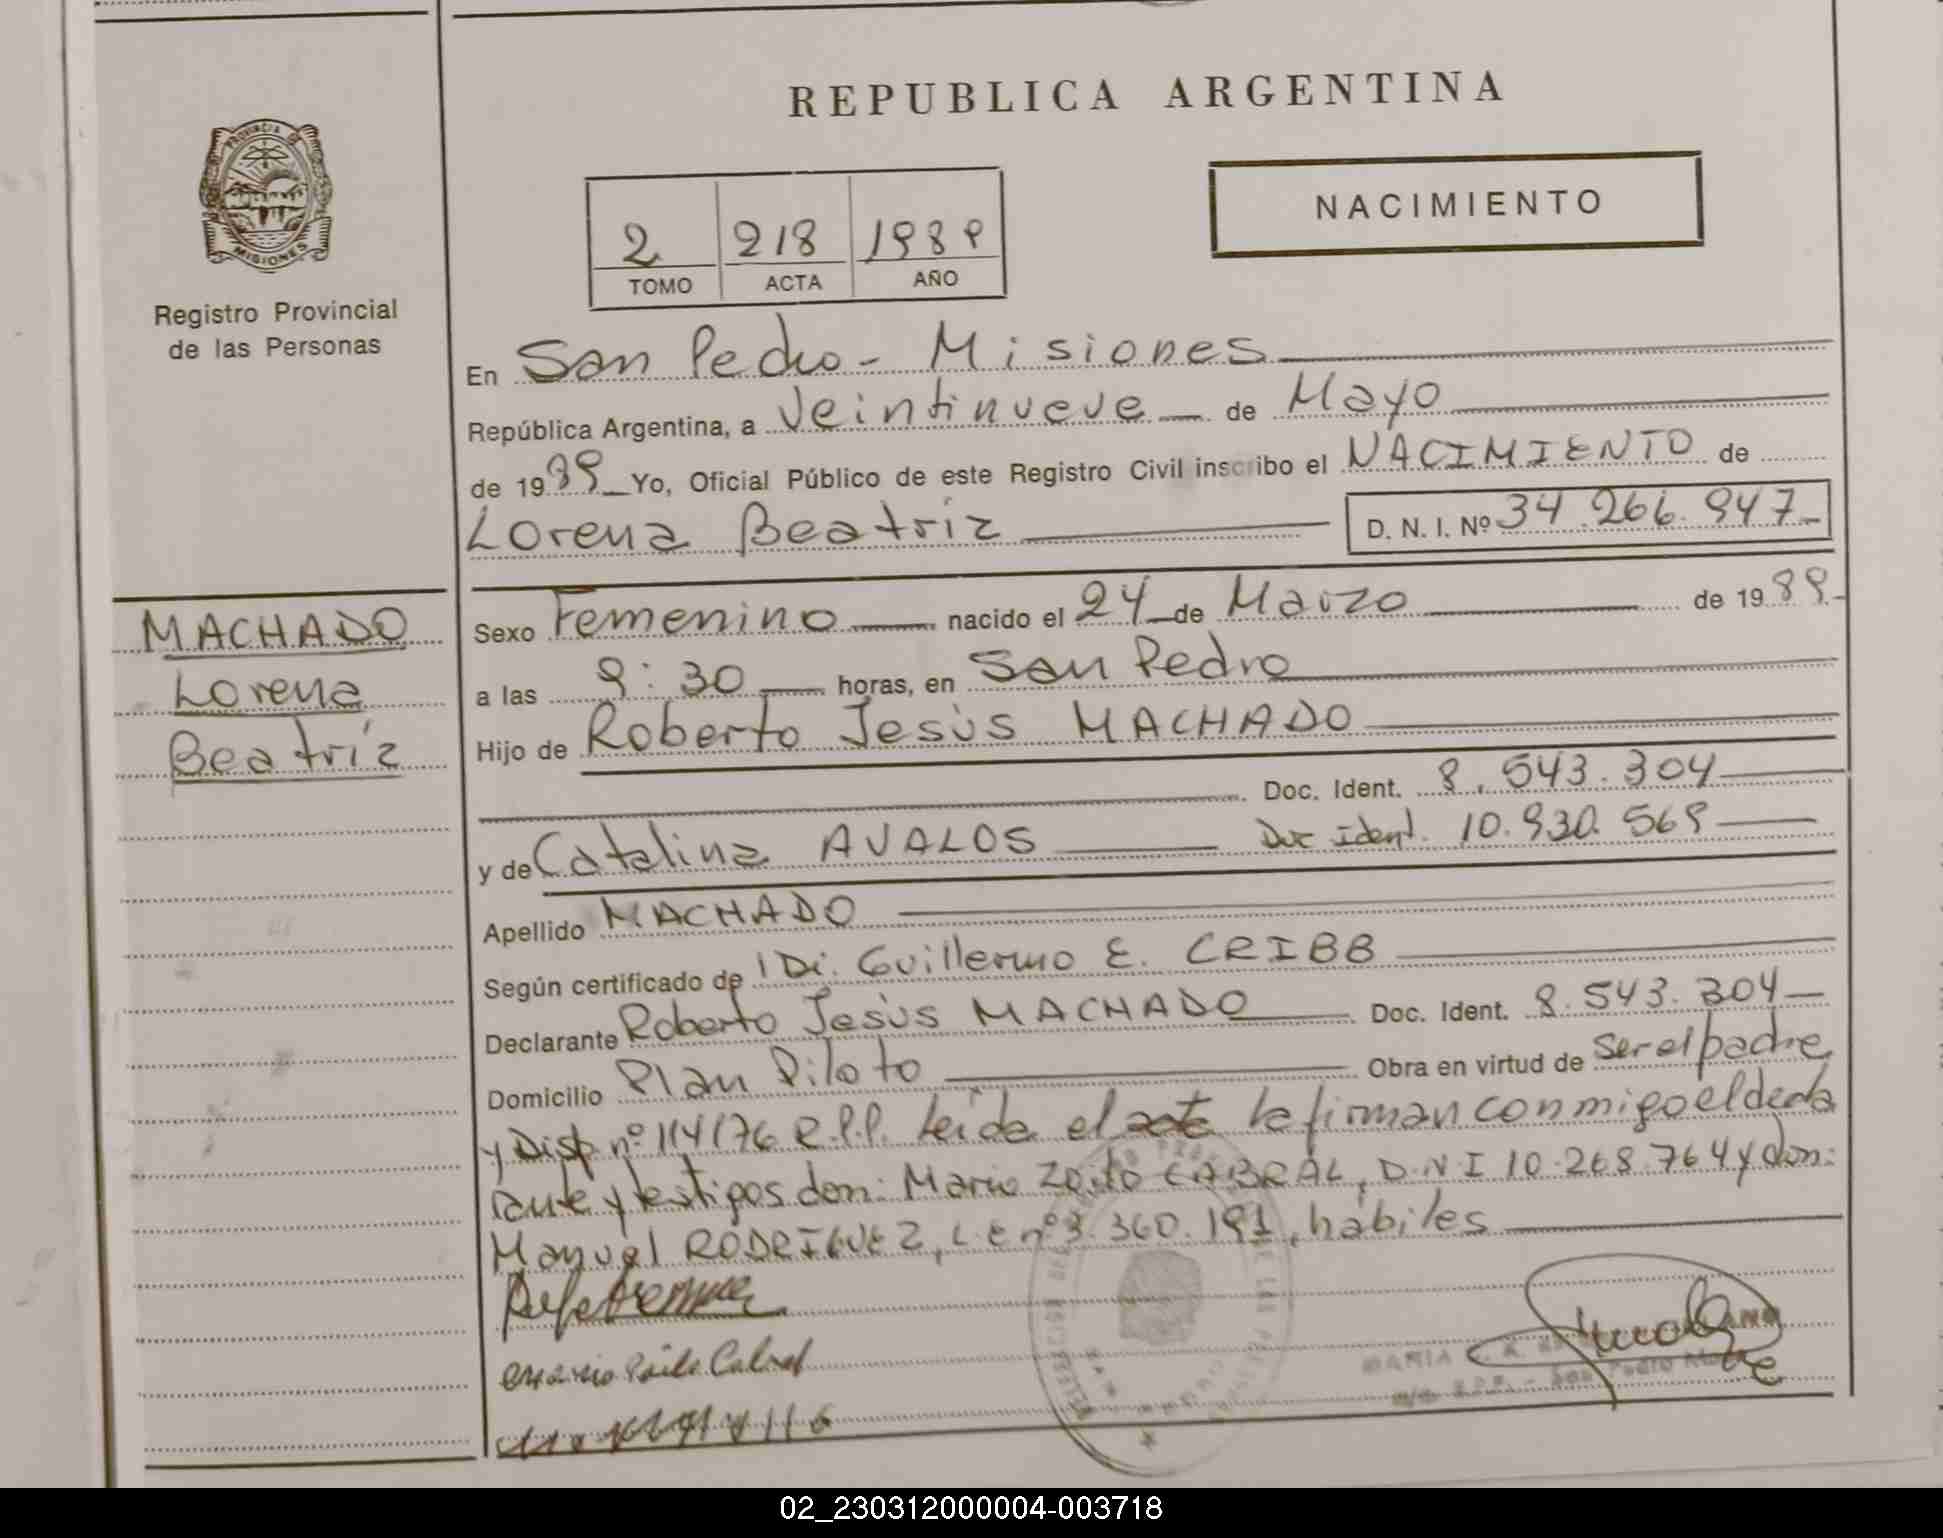 REPUBLICA ARGENTINA
PROVINCIA DE
MISIONES
Registro Provincial
de las Personas
NACIMIENTO
2 218 1989
TOMO ACTA AÑO
En San Pedro - Misiones
República Argentina, a Veintinueve de Mayo
de 1989 Yo, Oficial Público de este Registro Civil inscribo el NACIMIENTO de
Lorena Beatríz D. N. I. Nº 34.266.947
MACHADO
Lorena
Beatríz
Sexo Femenino nacido el 24 de Marzo de 1989
a las 9:30 horas, en San Pedro
Hijo de Roberto Jesús MACHADO
Doc. Ident. 8.543.304
y de Catalina AVALOS Doc Ident. 10.930.569
Apellido MACHADO
Según certificado de Dr. Guillermo E. CRIBB
Declarante Roberto Jesús MACHADO Doc. Ident. 8.543.304
Domicilio Plan Piloto Obra en virtud de ser el padre
y Disp. nº 114/76 R.P.P. leida el acta la firman conmigo el decla
rante y testigos don: Mario Zoilo CABRAL, D.N.I 10.268.764 y don:
Manuel RODRIGUEZ, L.E nº 3.360.191, hábiles
Mario Zoilo Cabral
MARIA
R.P.P. - San Pedro
02_230312000004-003718